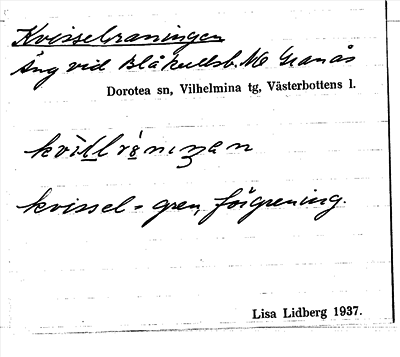 Kvisselraningen
Äng vid Blåkullsb. N Granås
Dorotea sn, Vilhelmina tg, Västerbottens l.
kvissel = gren, förgrening.
Lisa Lidberg 1937.